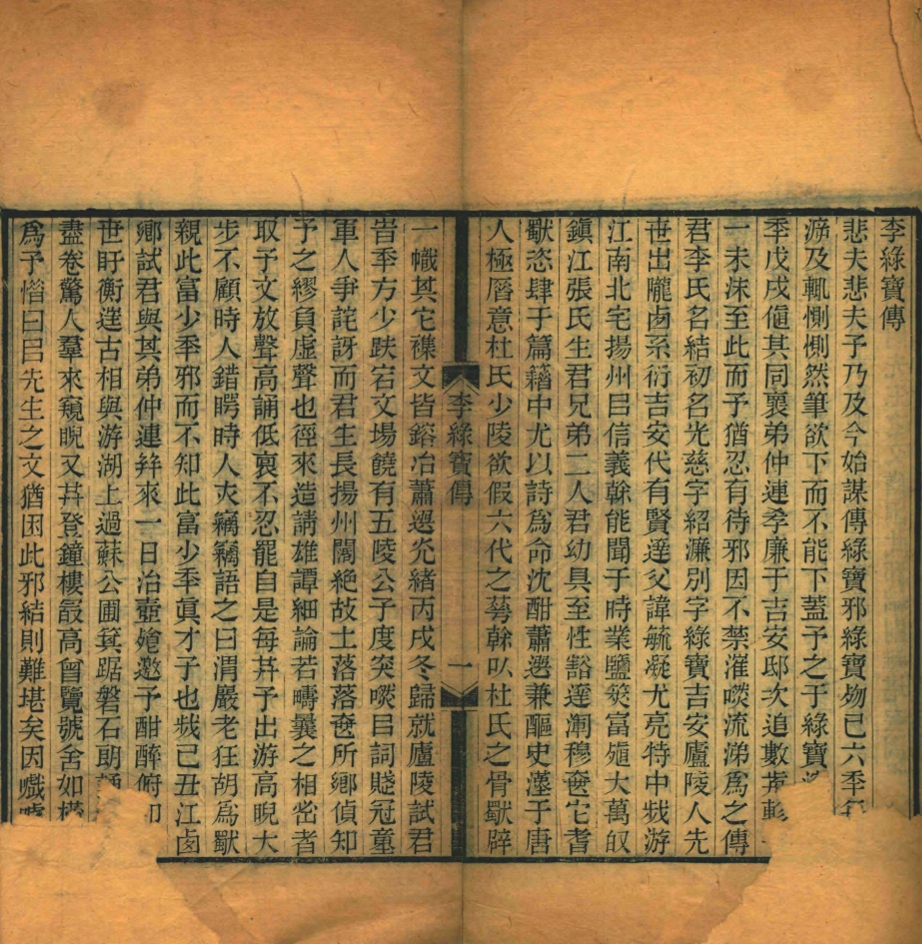 李綠寶傳
悲夫悲夫予乃及今始謀傳綠寶邪綠寶歾已六季
及輒惻惻然筆欲下而不能下蓋予之于綠寶
季戊戌偪其同褱弟仲連季廉于吉安邸次追數
一未沬至此而予猶忍有待邪因不禁漼㷼流涕爲之傳
君李氏名結初名光慈字紹濂別字綠寶吉安廬陵人先
丗出隴卥系衍吉安代有賢達父諱毓凝尤亮特中𢦏游
江南北宅揚州㠯信義榦能聞于時業鹽筴富殖大萬
鎮江張氏生君兄弟二人君幼具至性豁達淵穆㒫它耆
獸恣肆于篇籍中尤以詩爲命沈酣蕭選兼醧史漢于唐
人極厝意杜氏少陵欲假六代之蕚榦㠯杜氏之骨獸辟
李綠寶傳
一
一幟其它襍文皆鎔冶蕭選光緒丙戌冬歸就廬陵試君
旹季方少趺宕文場饒有五陵公子度突㷼㠯詞賤冠童
軍人爭詫訝而君生長揚州闊絶故土落落㒫所鄉偵知
予之繆負虛聲也徑來造請雄譚細論若疇曩之相㳷者
取予文放聲高誦低裵不忍罷自是每冓予出游高睨大
步不顧時人錯愕時人夾竊竊語之曰渭嚴老狂胡爲獸
親此富少季邪而不知此富少季眞才子也𢦏己丑江卥
鄉試君與其弟仲連羍來一日冶壺飽邀予酣醉俯卬
丗盱衡達古相與游湖上過蘇公圃箕踞磐石朗誦
盡卷驚人羣來窺睨又冓登鐘樓㝡高曾覽號舍如
爲予愲曰㠯先生之文猶困此邪結則難堪矣因嘰噓